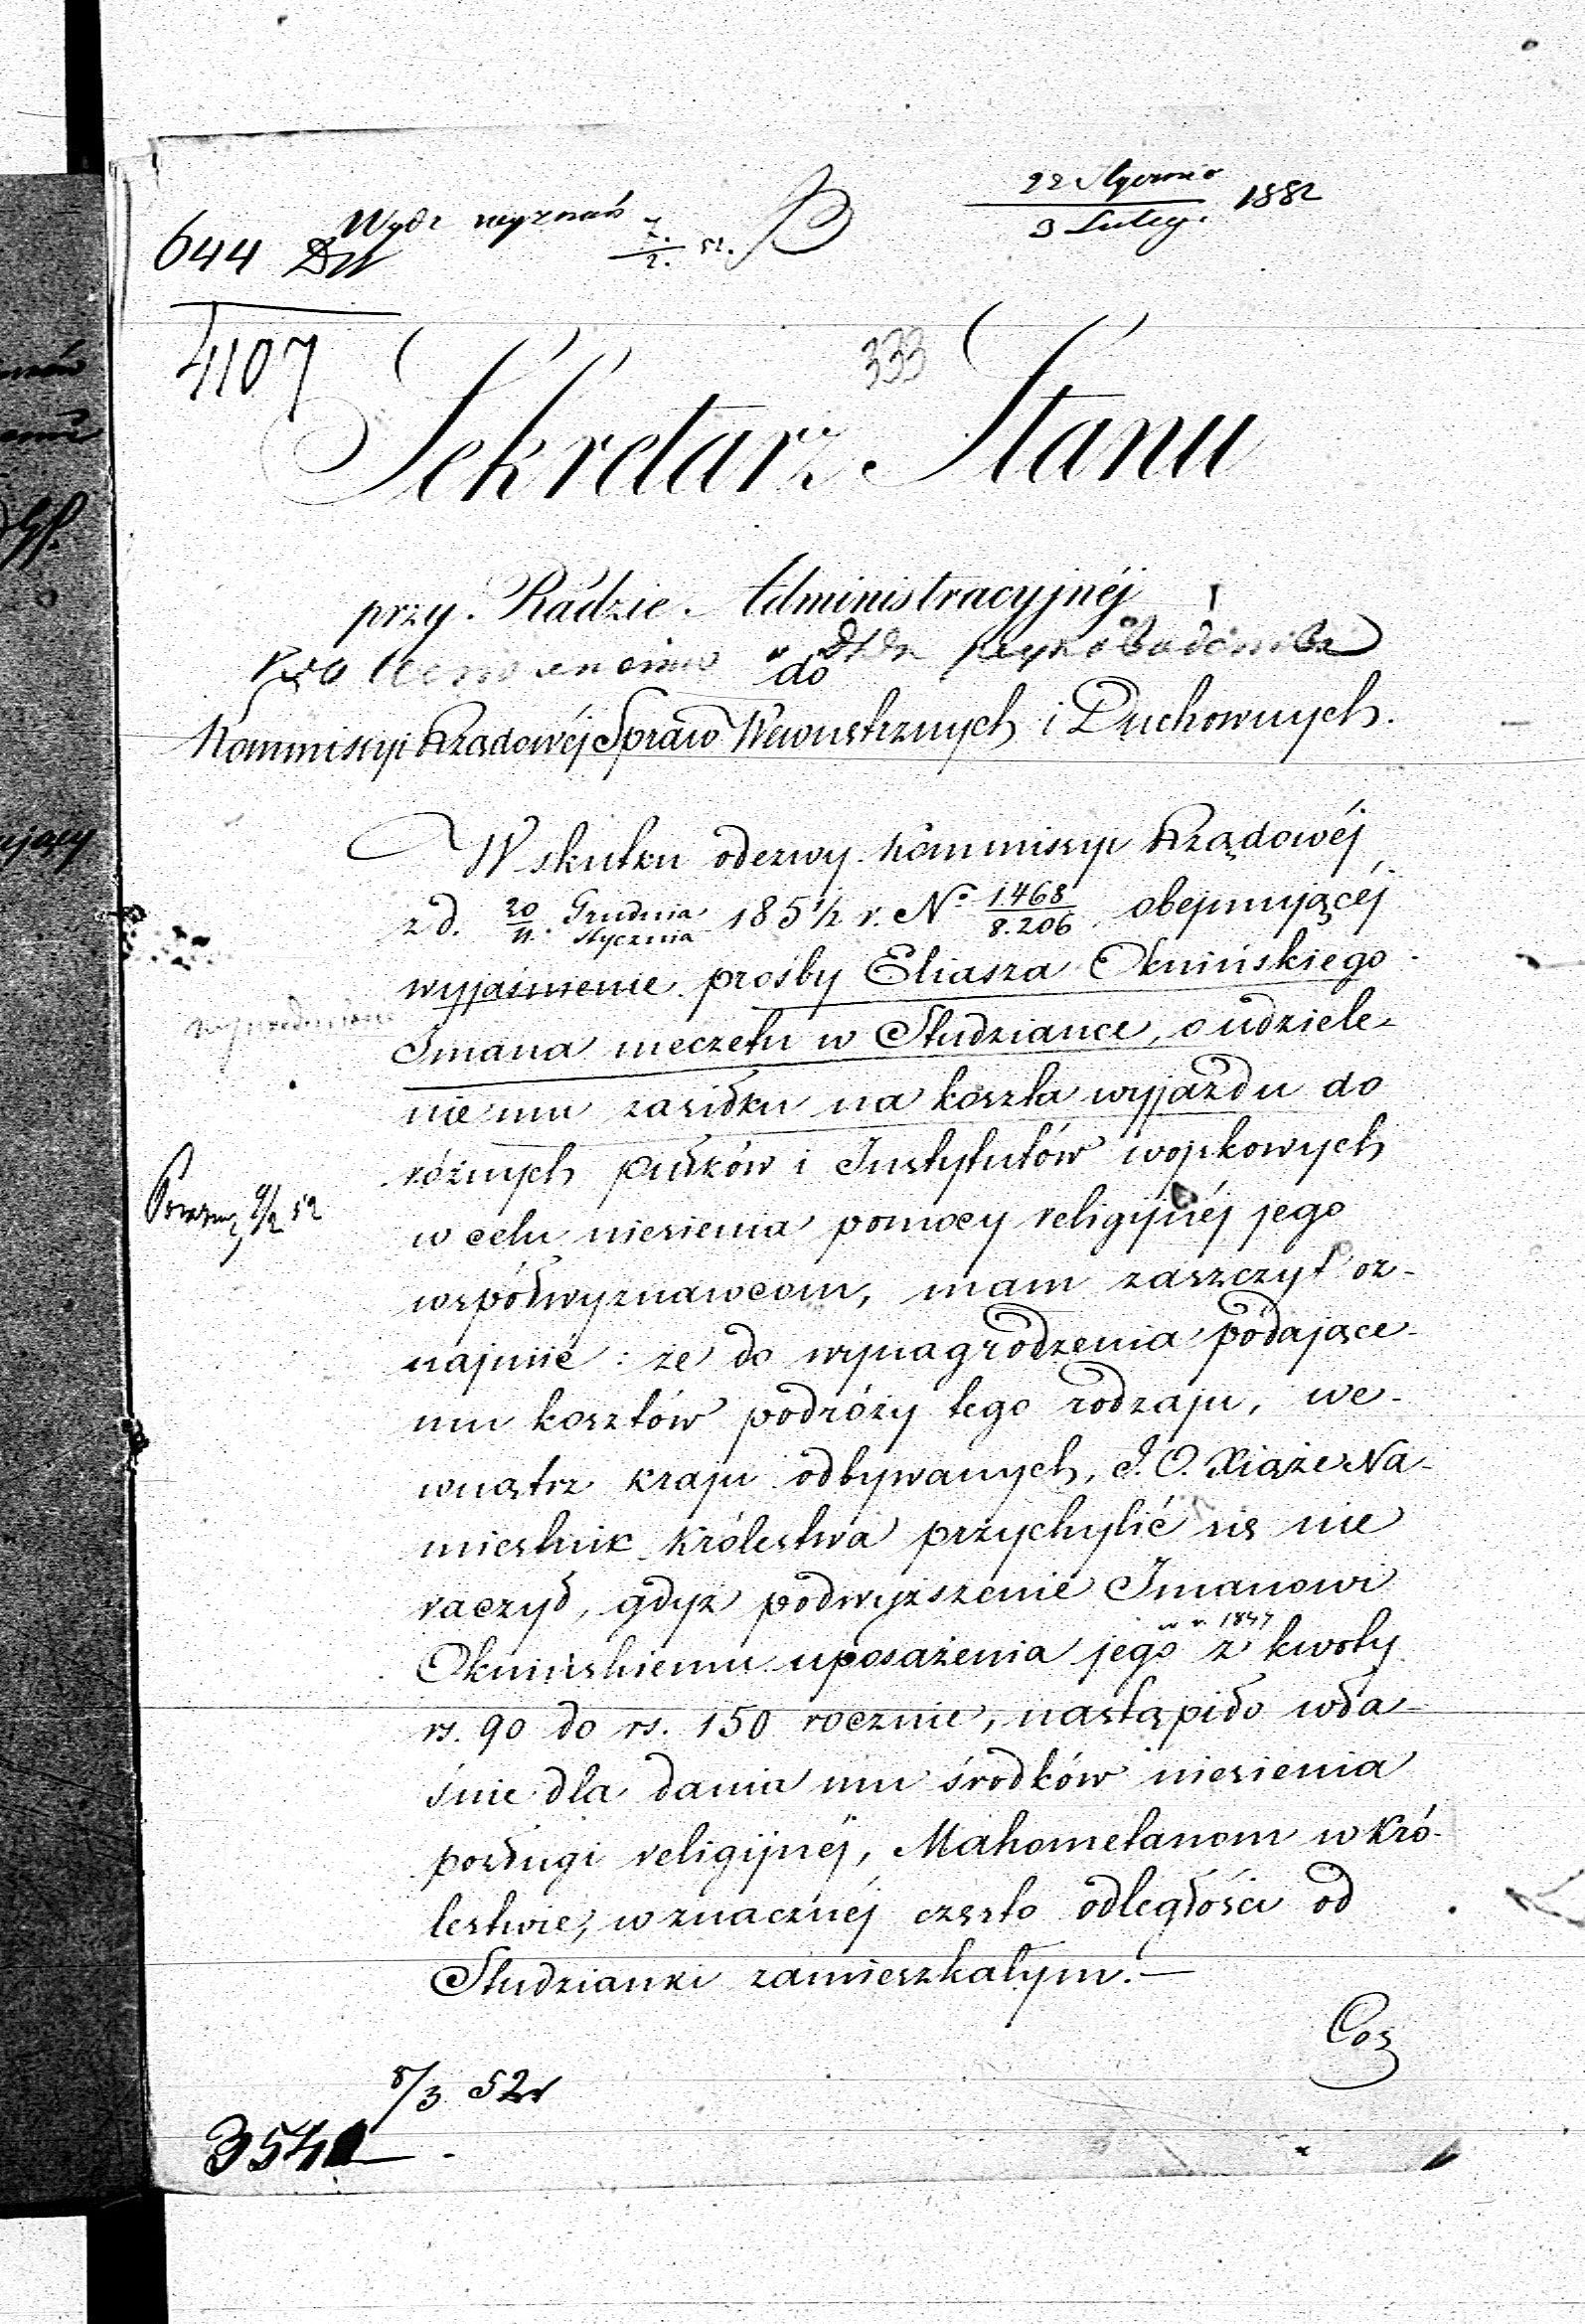 22 Stycznia
3 Lutego 1852
Wydz wyznań 7/2. 52.
644 DW
4107
333
Sekretarz Stanu
przy Radzie Administracyjnéj
do
Kommissyi Rządowéj Spraw Wewnętrznych i Duchownych.
W skutku odezwy Kommissyi Rządowéj
z d. 20/11. Grudnia/Stycznia 185 1/2 r. No 1468/8.206 obejmującéj
wyjaśnienie prośby Eliasza Okmińskiego
Imana meczetu w Studziance, o udziele-
nie mu zasiłku na koszta wyjazdu do
różnych pułków i Instytutów wojskowych
w celu niesienia pomocy religijnéj jego
współwyznawcom, mam zaszczyt oz-
najmić: że do wynagrodzenia podające-
mu kosztów podróży tego rodzaju, we-
wnątrz kraju odbywanych, J. O. Xiąże Na-
miestnik Królestwa przychylić się nie
raczył, gdyż podwyższenie Imanowi
Okmińskiemu uposażenia jego w r. 1847 z kwoty
rs. 90 do rs. 150 rocznie, nastąpiło wła-
śnie dla dania mu środków niesienia
posługi religijnéj, Mahometanom w Kró-
lestwie, w znacznéj często odległości od
Studzianki zamieszkałym.—
8/3 52r
354